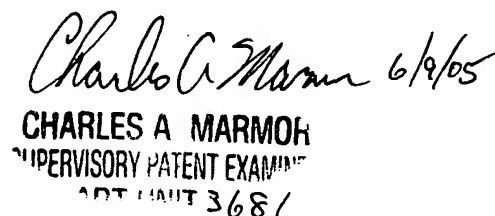 Charles A Marmor 6/9/05
CHARLES A MARMOR
SUPERVISORY PATENT EXAMINER
ART UNIT 3681